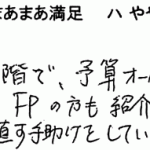 まあまあ満足　ハ　やや
階で、予算オー
FPの方も紹介
直す手助けをしてい